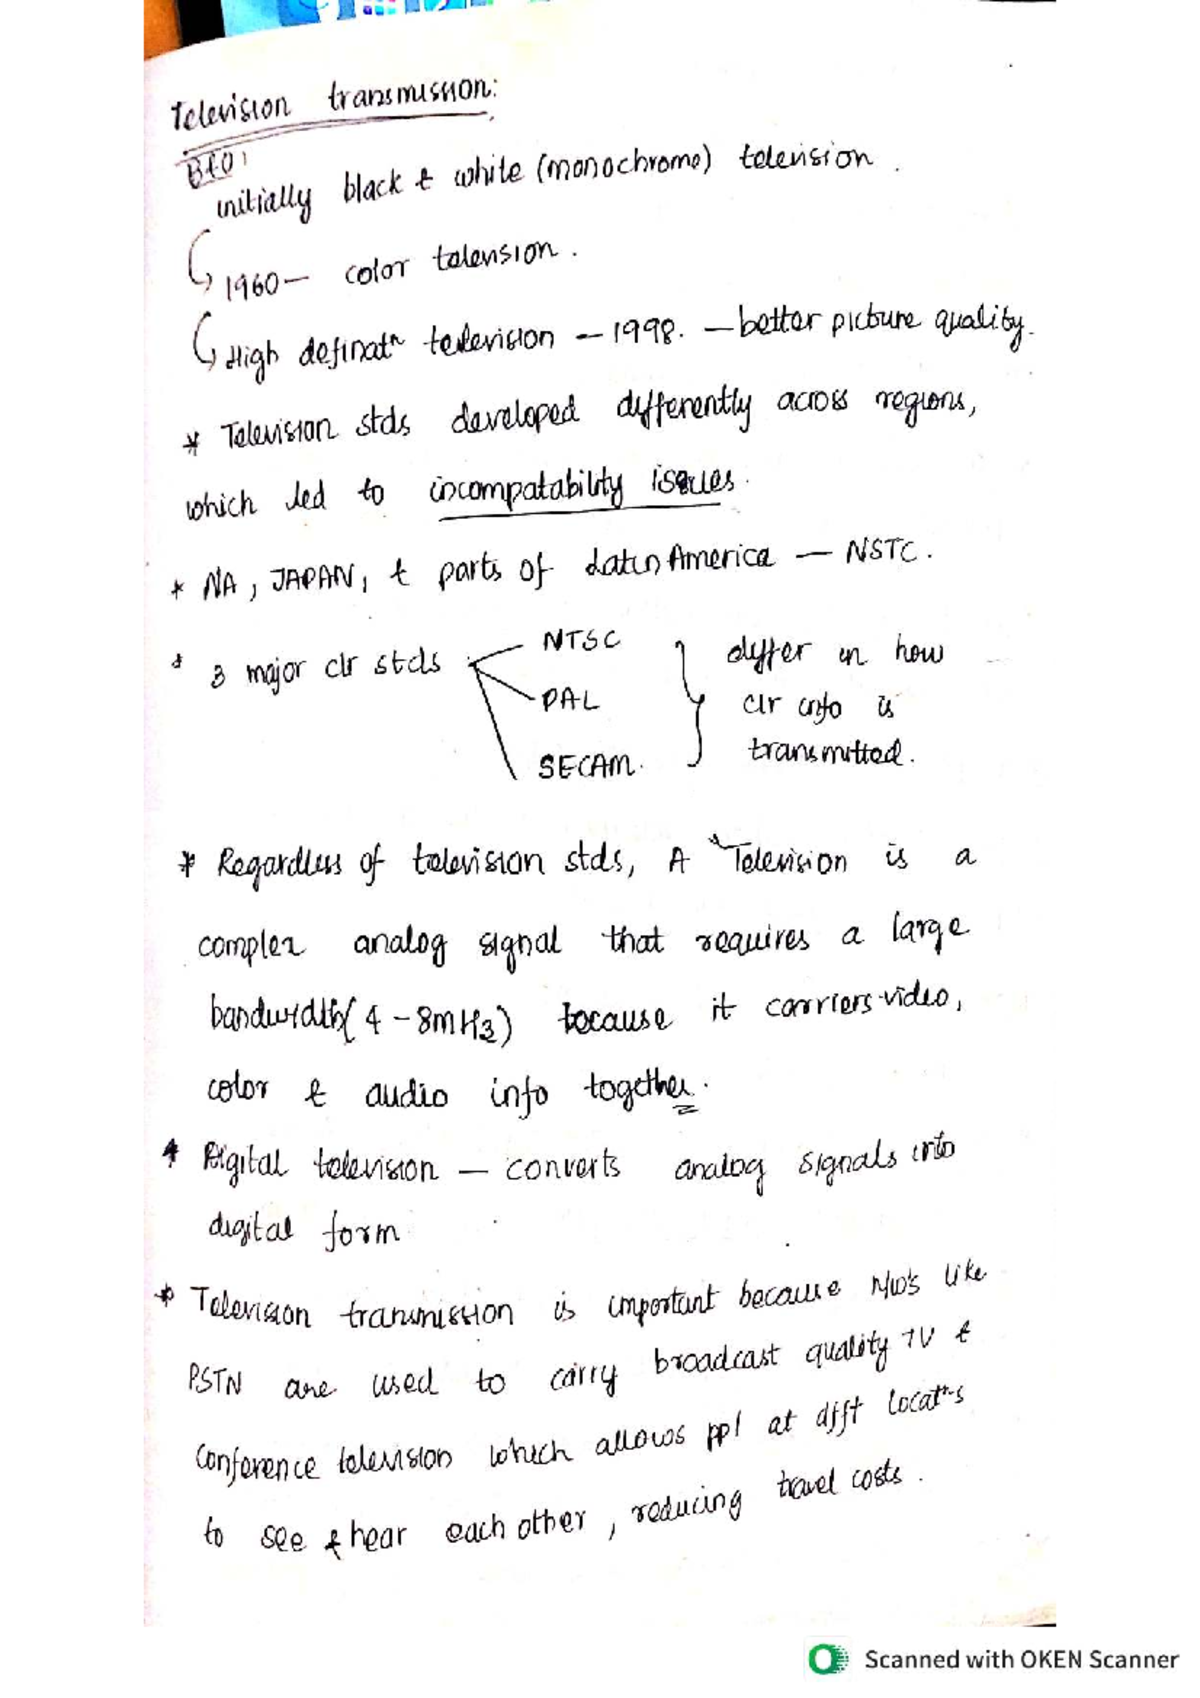 Television transmission:
initially black & white (monochrome) television.
1960 — color television.
High definatn television — 1998. — better picture quality.
* Television stds developed differently across regions,
which led to incompatability issues.
* NA, JAPAN, & parts of Latin America — NSTC.
* 3 major clr stds
NTSC
PAL
SECAM.
differ in how
clr info is
transmitted.
* Regardless of television stds, A Television is a
complex analog signal that requires a large
bandwidth (4 - 8 MHz) because it carriers video,
color & audio info together.
* Digital television — converts analog signals into
digital form
* Television transmission is important because N/W's like
PSTN are used to carry broadcast quality TV &
Conference television which allows ppl at dfft locatns
to see & hear each other, reducing travel costs.
Scanned with OKEN Scanner